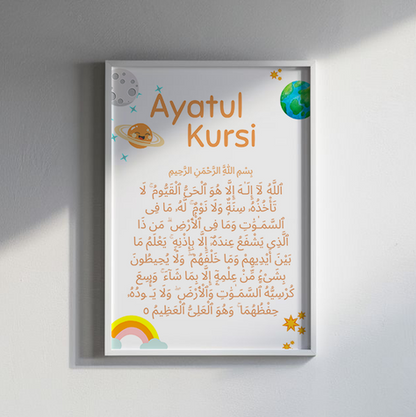 Ayatul
Kursi
بِسْمِ اللَّهِ الرَّحْمَٰنِ الرَّحِيمِ
ٱللَّهُ لَآ إِلَـٰهَ إِلَّا هُوَ ٱلْحَىُّ ٱلْقَيُّومُ ۚ لَا
تَأْخُذُهُۥ سِنَةٌ وَلَا نَوْمٌ ۚ لَّهُۥ مَا فِى
ٱلسَّمَـٰوَٰتِ وَمَا فِى ٱلْأَرْضِ ۗ مَن ذَا
ٱلَّذِى يَشْفَعُ عِندَهُۥٓ إِلَّا بِإِذْنِهِۦ ۚ يَعْلَمُ مَا
بَيْنَ أَيْدِيهِمْ وَمَا خَلْفَهُمْ ۖ وَلَا يُحِيطُونَ
بِشَىْءٍ مِّنْ عِلْمِهِۦٓ إِلَّا بِمَا شَآءَ ۚ وَسِعَ
كُرْسِيُّهُ ٱلسَّمَـٰوَٰتِ وَٱلْأَرْضَ ۖ وَلَا يَـُٔودُهُۥ
حِفْظُهُمَا ۚ وَهُوَ ٱلْعَلِىُّ ٱلْعَظِيمُ ٥